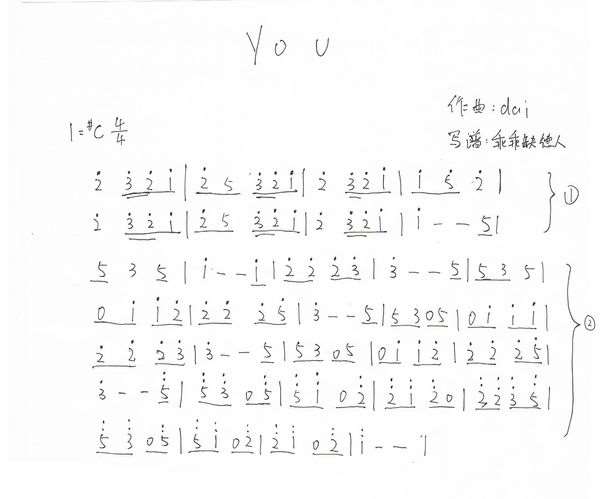 YOU
作曲:dai
1=#C 4/4
写谱:乖乖缺德人
2̇ 3̇2̇1̇|2̇5 3̇2̇1̇|2̇ 3̇2̇1̇|1̇ 5̇ 2̇| ①
2̇ 3̇2̇1̇|2̇5 3̇2̇1̇|2̇ 3̇2̇1̇|1̇--5|
5 3 5|1̇--1̇|2̇ 2̇ 2̇3̇|3̇--5|535|
0 1̇ 1̇2̇|2̇2̇ 2̇5̇|3̇--5|5305|01̇ 1̇1̇| ②
2̇ 2̇ 2̇3̇|3̇--5|5305|01̇1̇2̇|2̇2̇ 2̇5̇|
3̇--5̇|5̇3̇ 05̇|5̇1̇ 02̇|2̇1̇ 2̇0|2̇2̇3̇5̇|
5̇ 3̇ 05̇|5̇1̇ 02̇|2̇1̇ 02̇|1̇--1